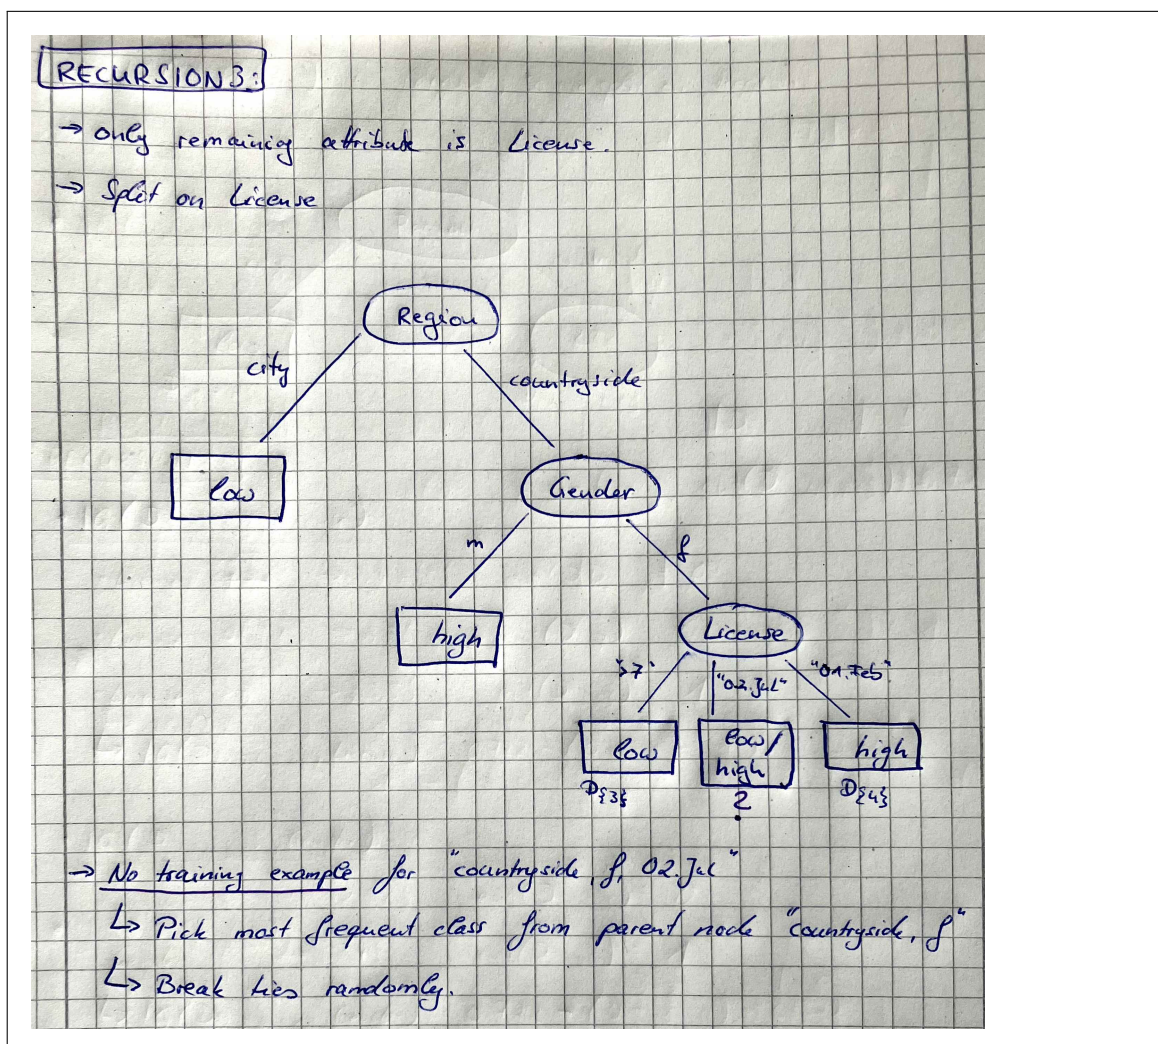 RECURSION 3:
→ only remaining attribute is License.
→ Split on License
Region
city
countryside
low
Gender
m
f
high
License
">7"
"02.Jul"
"01.Feb"
low
low/
high
high
D{3}
?
D{4}
→ No training example for "countryside, f, 02.Jul"
↳ Pick most frequent class from parent node "countryside, f"
↳ Break ties randomly.